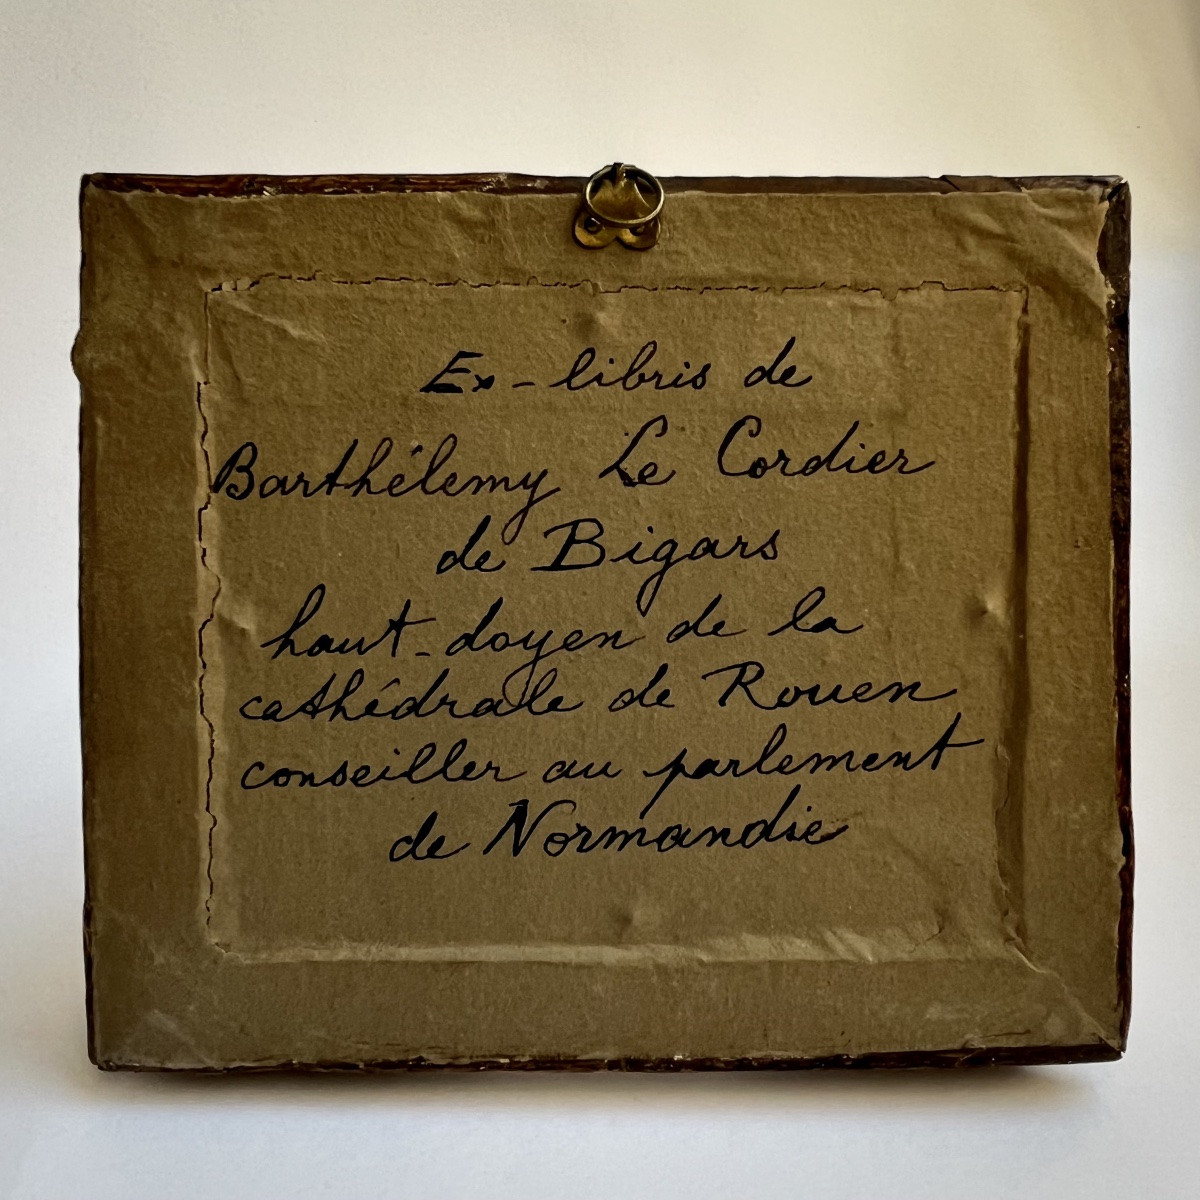 Ex-libris de
Barthélemy Le Cordier
de Bigars
haut-doyen de la
cathédrale de Rouen
conseiller au parlement
de Normandie